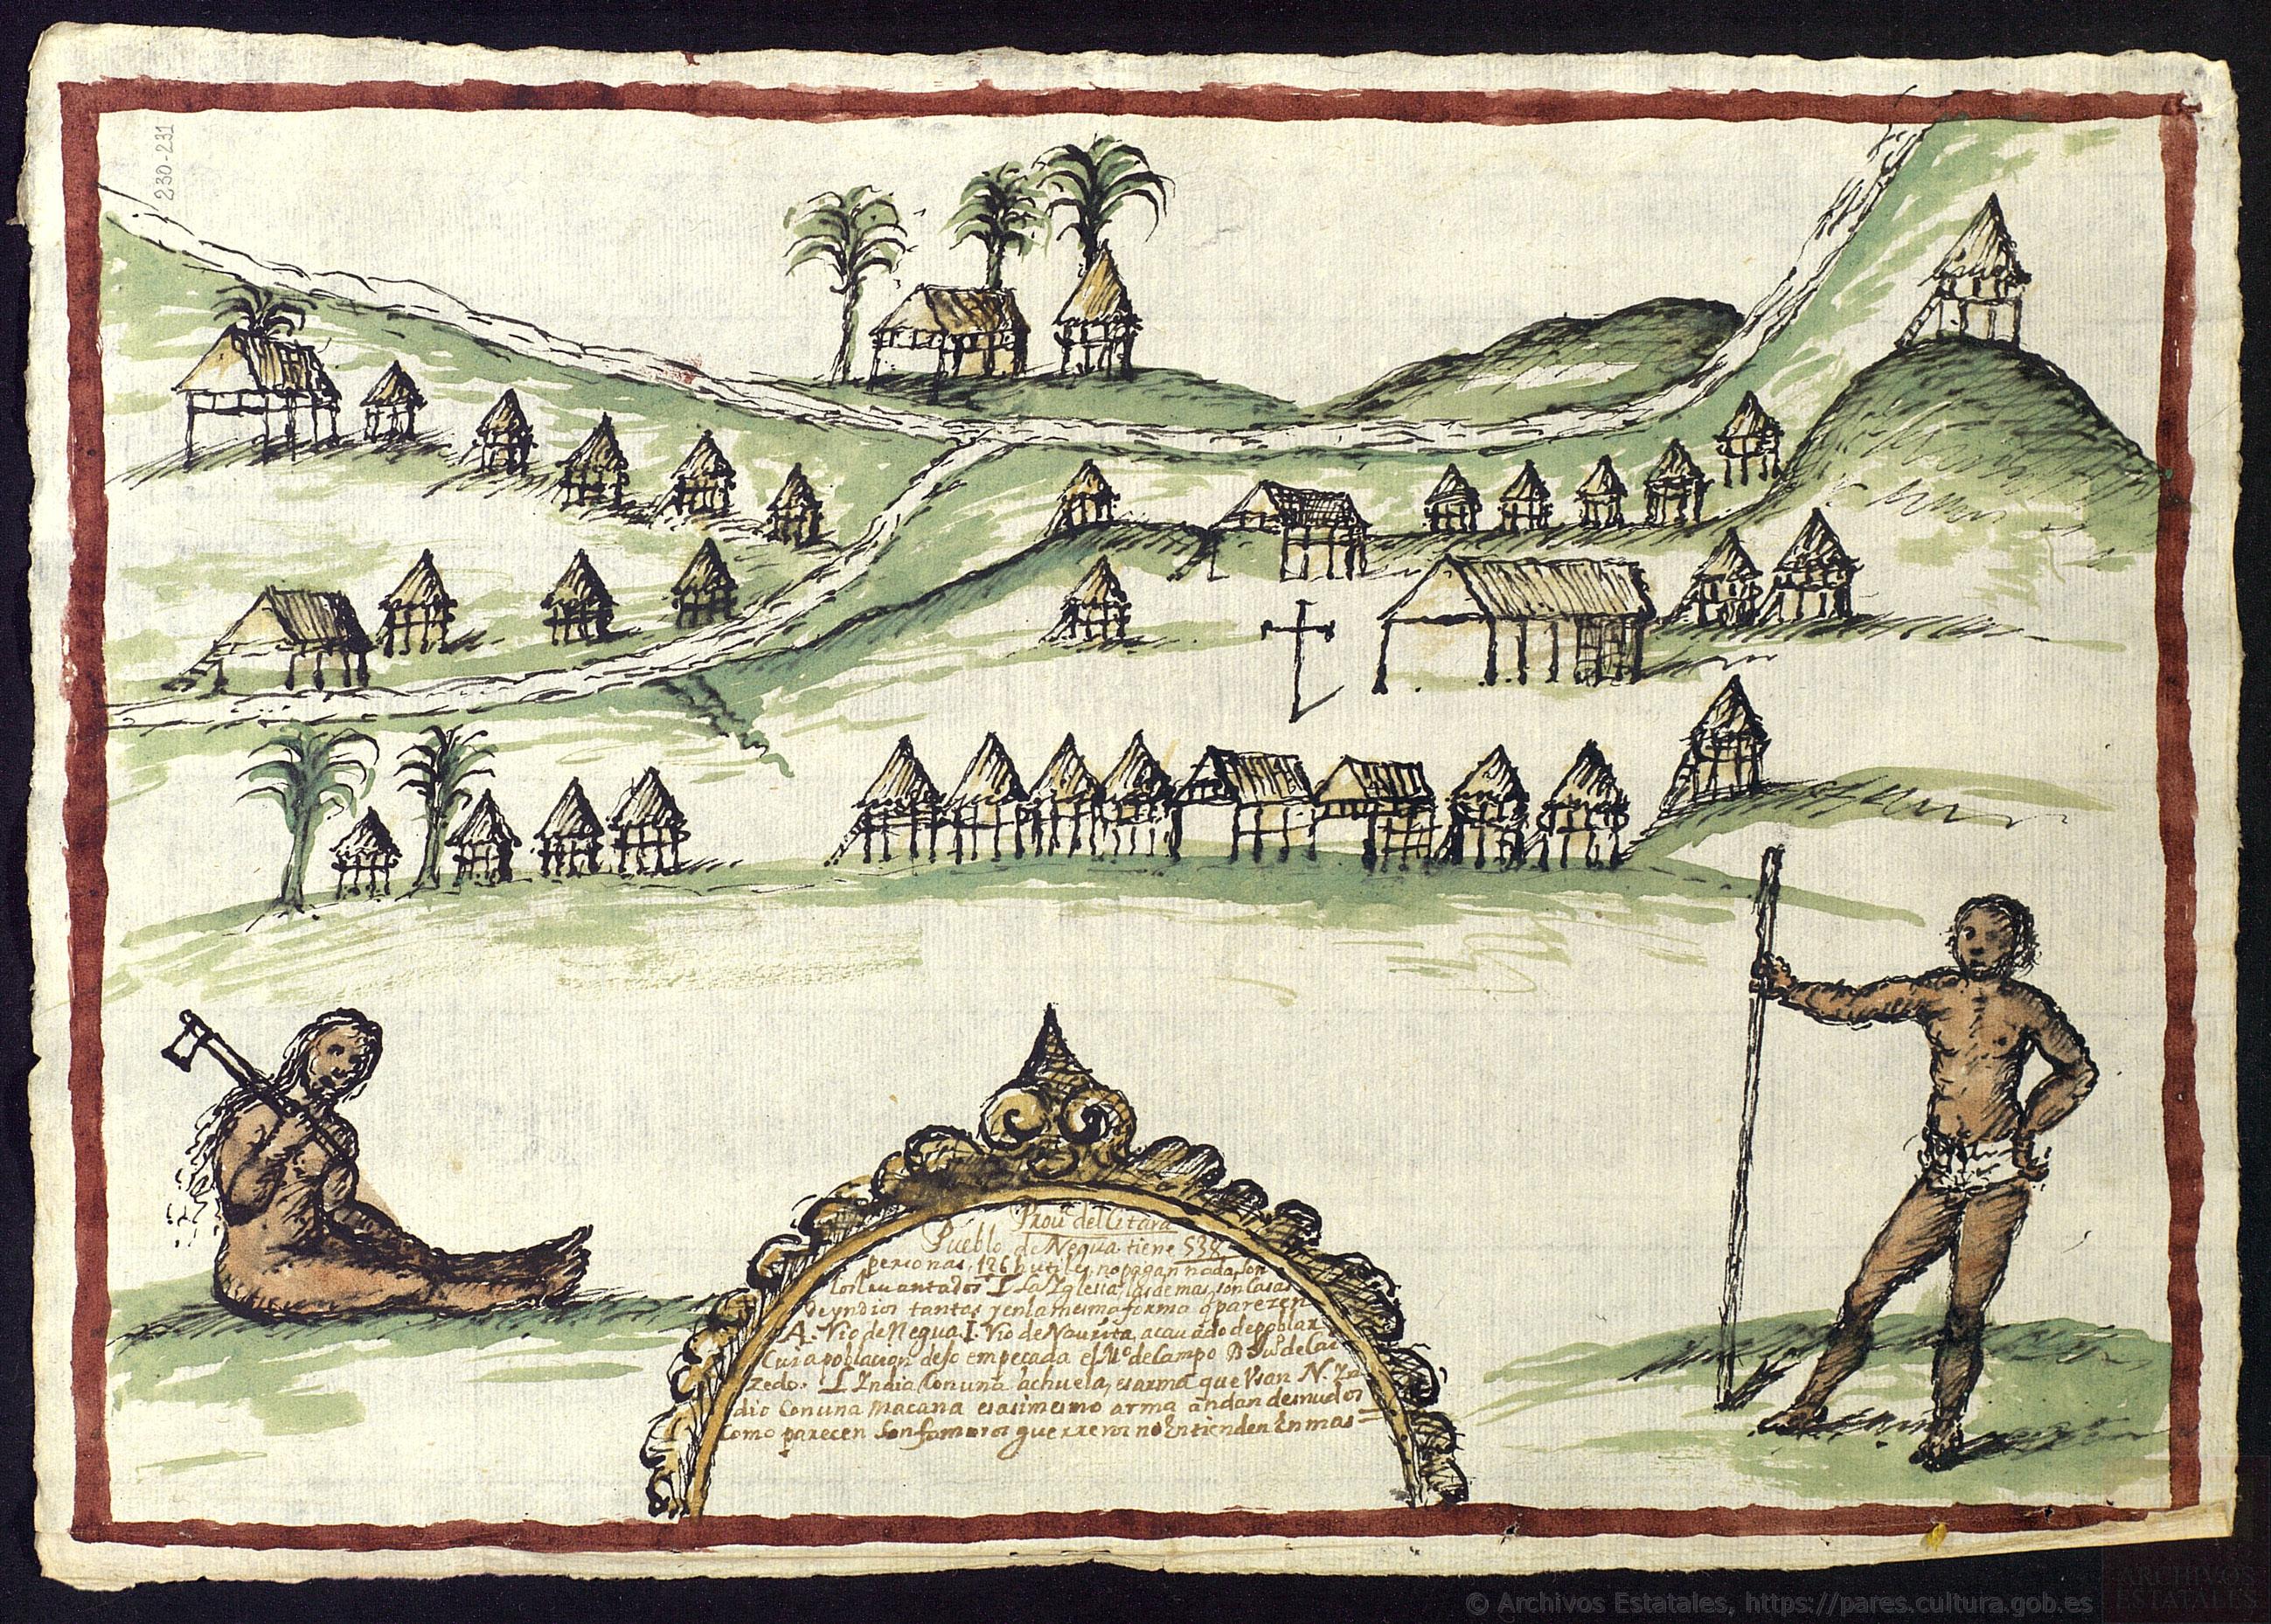 230-231
Prouᵃ del Citara
Pueblo de Negua tiene 538
personas, 126 utiles, no pagan nada, son
los levantados L La Yglesia, las demas, son Casas
de yndios tantas y en la mesma forma q parezen
A. Rio de Negua I. Rio de Naurita, acauado de poblar
Cuia poblacion dejo empeçada el Mº de Campo Dⁿ Juº de Cai
zedo. L India Con una hachuela, es arma que Usan N. Yn
dio Con una Macana es asimesmo arma andan desnudos
Como parecen son famosos guerreros no Entienden En mas =
© Archivos Estatales, https://pares.cultura.gob.es
ARCHIVOS
ESTATALES